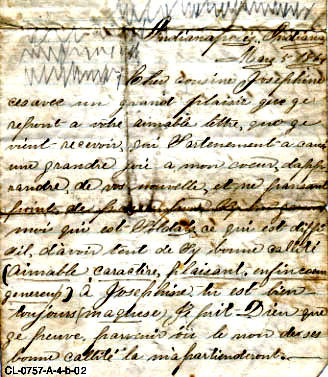 Indianapolis, Indiana
May 5 186
Cher cousine Josephine
ces avec un grand plaisir que je
repont a votre aimable lettre, que je
vient recevoir, qui a
une grandre joie a mon coeur, d'ap
randre de vos nouvelle, et ne
point de
moi qui est Soldat, ce qui est diffi
sil, d'avoir tent de Sy bonne callité
(aimable caractère, plaisant, enfin coeur
genereux) à Josephine tu est bien
toujours Je prit Dieu que
je peuve parvenir où le non des ses
bonne callité la
CL-0757-A-4-b-02